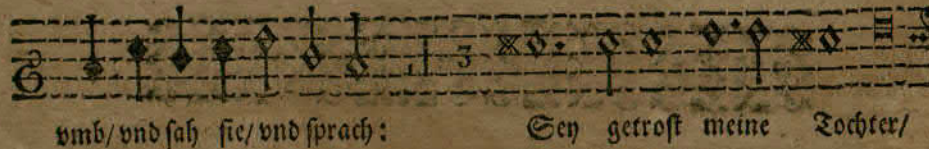 3
vmb/ vnd ſah ſie/ vnd ſprach: Sey getroſt meine Tochter/